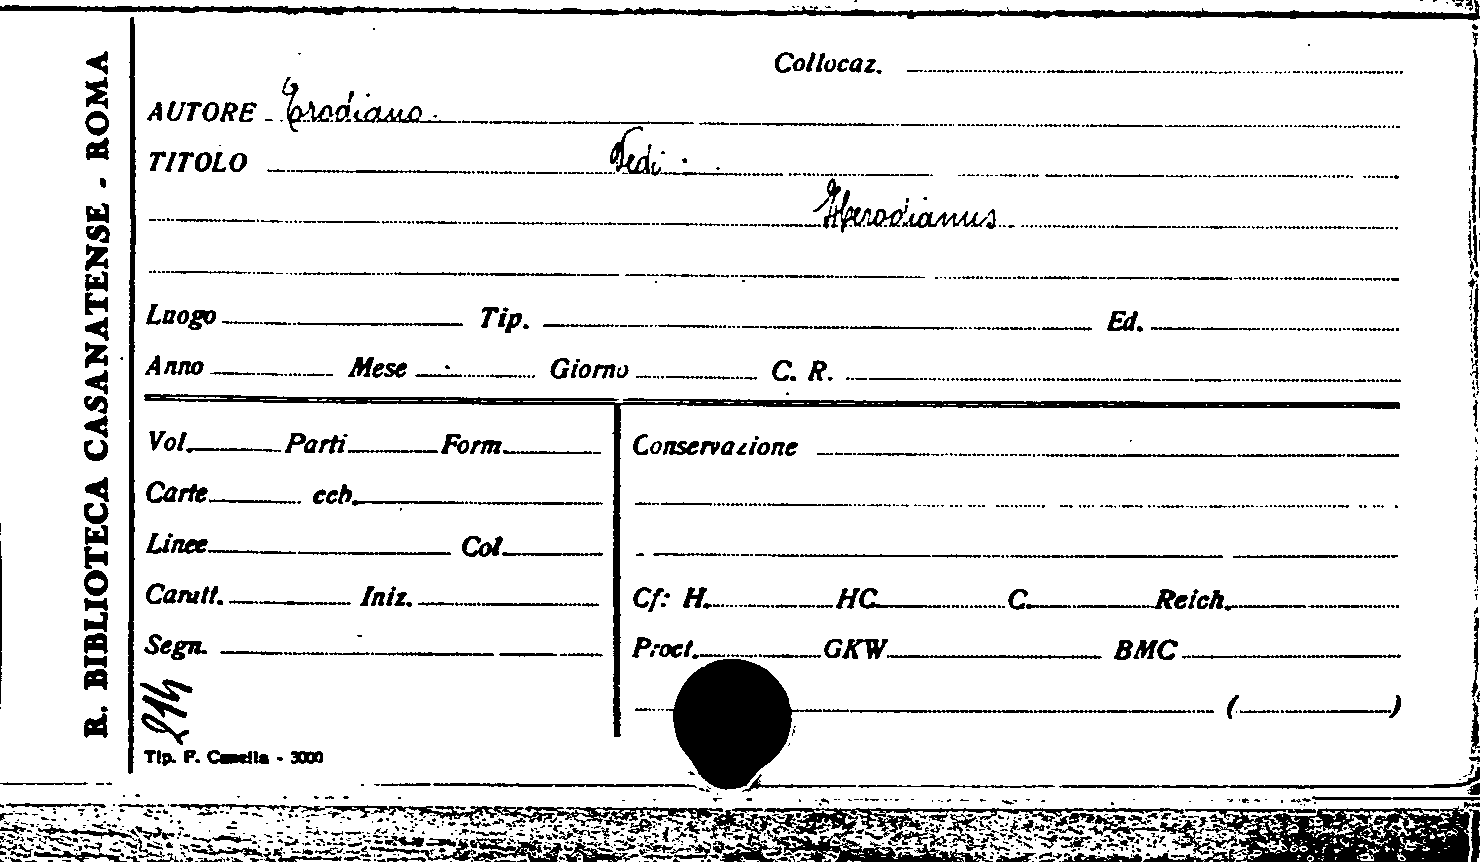 R. BIBLIOTECA CASANATENSE - ROMA
Collocaz.
AUTORE Erodiano
TITOLO Vedi:
Herodianus
Luogo Tip. Ed.
Anno Mese Giorno C. R.
Vol. Parti Form.
Carte ccb.
Linee Col.
Caratt. Iniz.
Segn.
Conservazione
Cf: H. HC C. Reich.
Proct. GKW BMC
( )
214
Tip. F. Canella - 3000